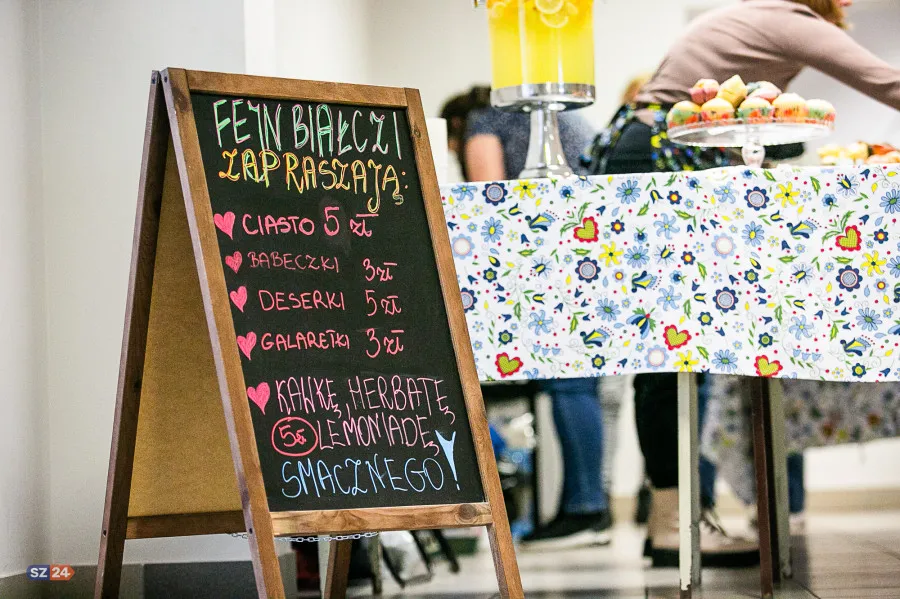 FEYN BIAŁCZI
ZAPRASZAJĄ:
CIASTO 5 zł
BABECZKI 3zł
DESERKI 5zł
GALARETKI 3zł
KAWKĘ, HERBATĘ,
LEMONIADĘ
SMACZNEGO!
SZ 24